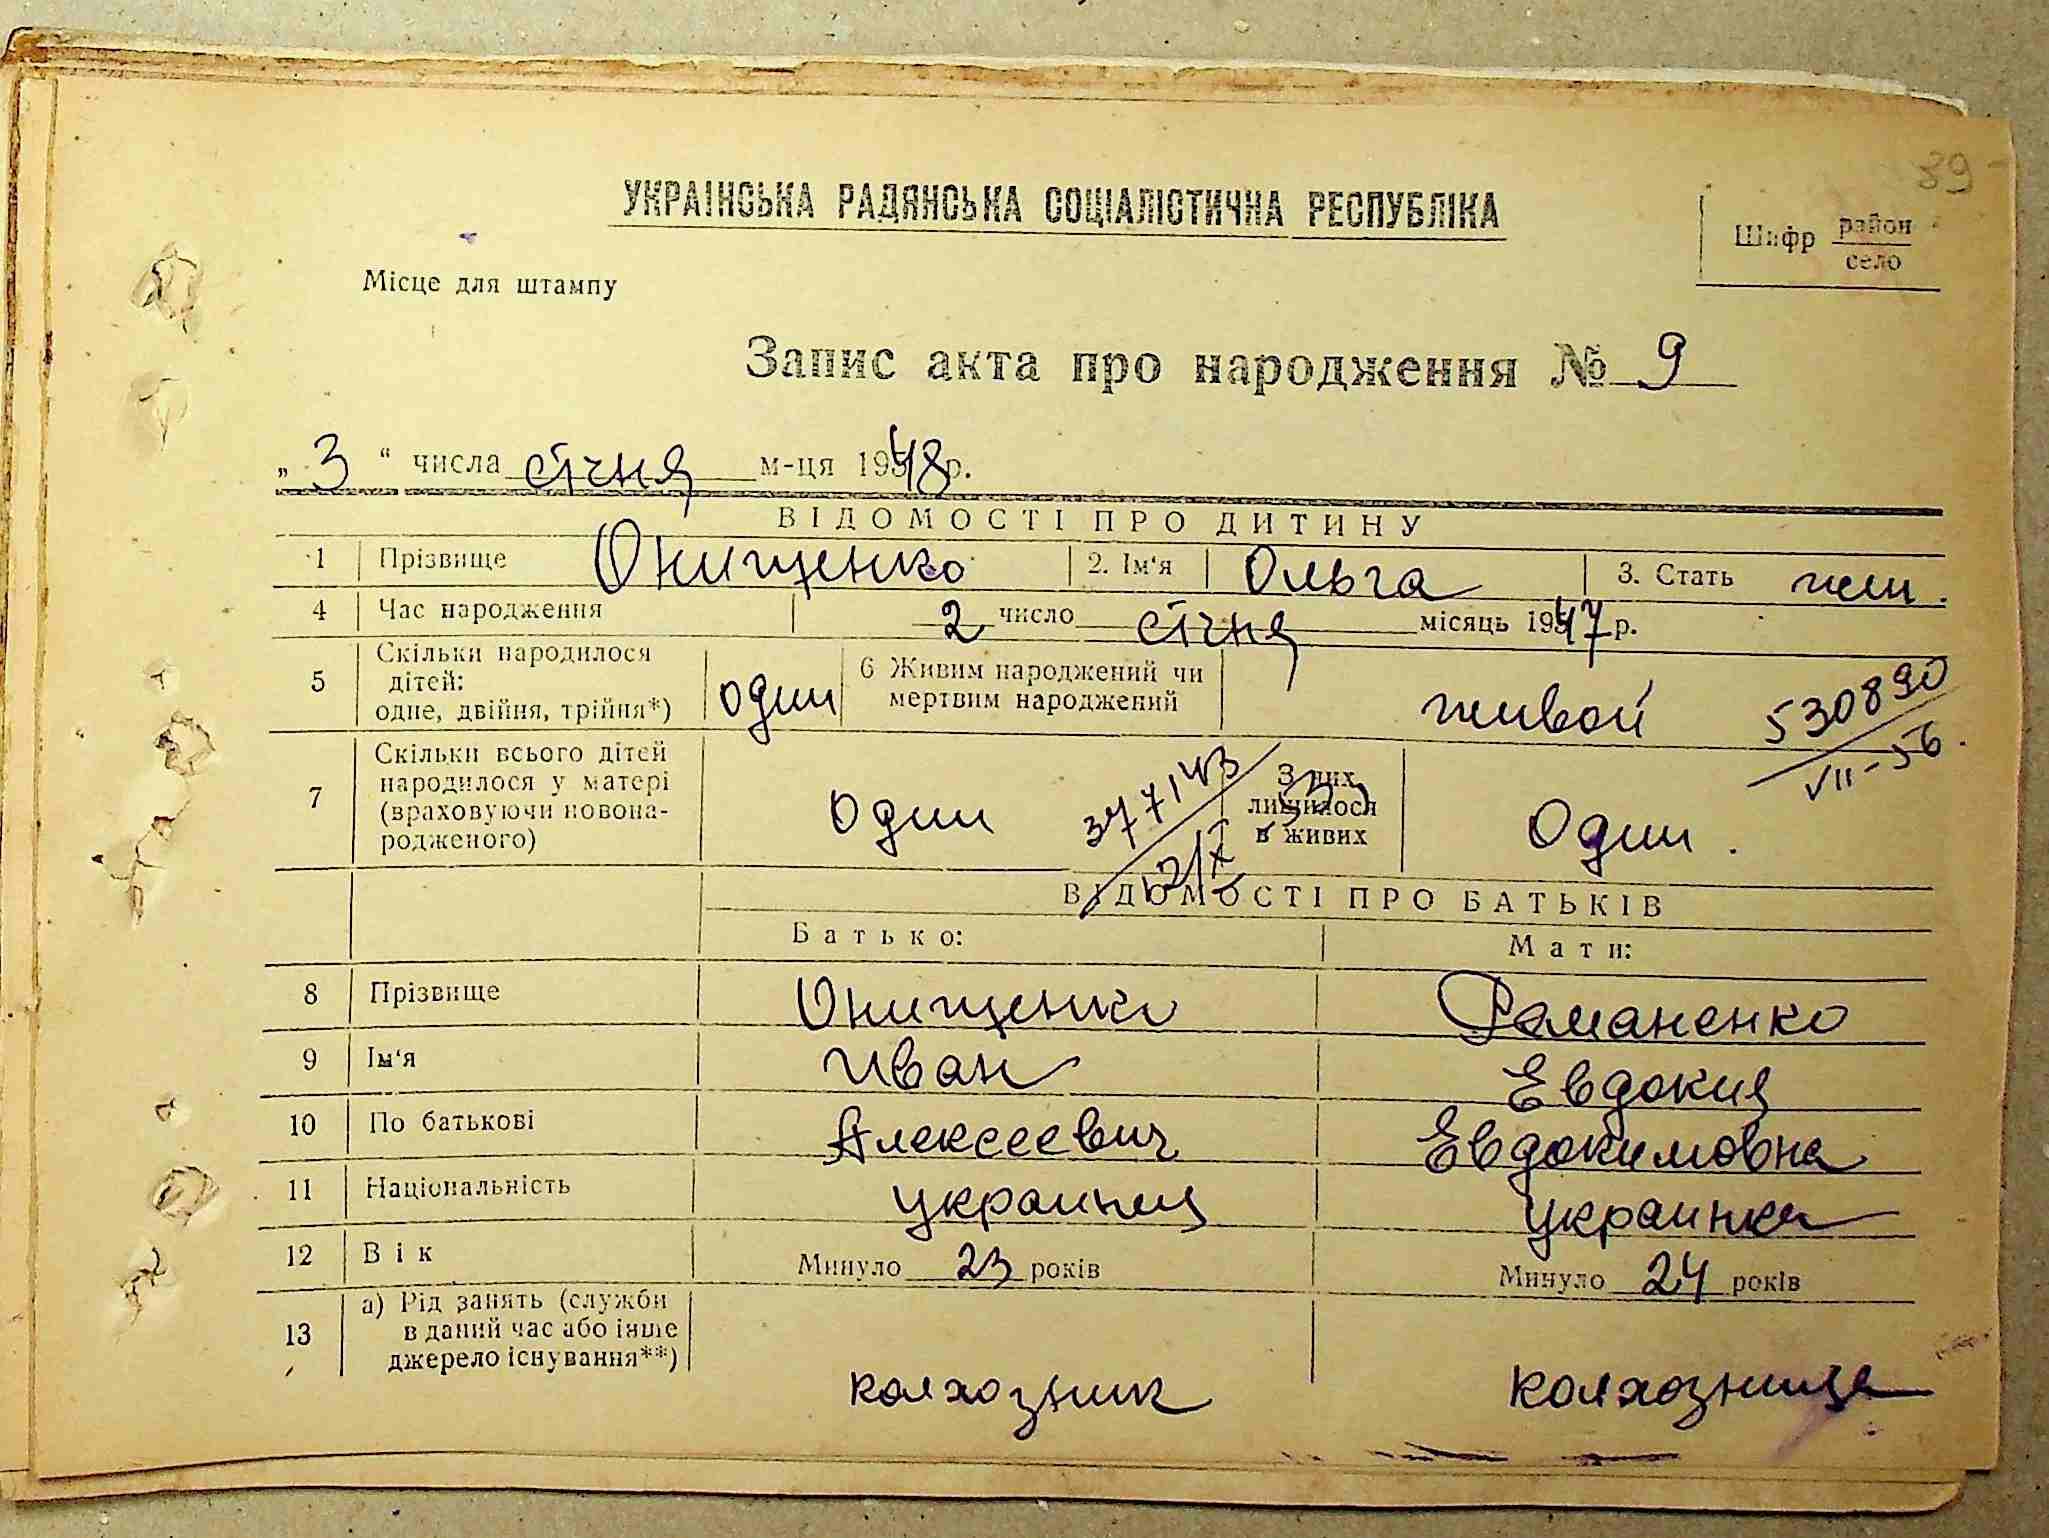 39
УКРАЇНСЬКА РАДЯНСЬКА СОЦІАЛІСТИЧНА РЕСПУБЛІКА
Шифр район
село
Місце для штампу
Запис акта про народження № 9
„ 3 “ числа січня м-ця 1948 р.
ВІДОМОСТІ ПРО ДИТИНУ
1 Прізвище Онищенко 2. Ім'я Ольга 3. Стать жен.
4 Час народження 2 число січня місяць 1947 р.
5 Скільки народилося дітей: одне, двійня, трійня*) один 6 Живим народжений чи мертвим народжений живой
530890
VII-56.
7 Скільки всього дітей народилося у матері (враховуючи новонародженого) один З них лишилося в живих один.
377143
ВІДОМОСТІ ПРО БАТЬКІВ
Батько: Мати:
8 Прізвище Онищенко Романенко
9 Ім'я Иван Евдокия
10 По батькові Алексеевич Евдокимовна
11 Національність украинец украинка
12 Вік Минуло 23 років Минуло 24 років
13 а) Рід занять (служби в даний час або інше джерело існування**) колхозник колхозница